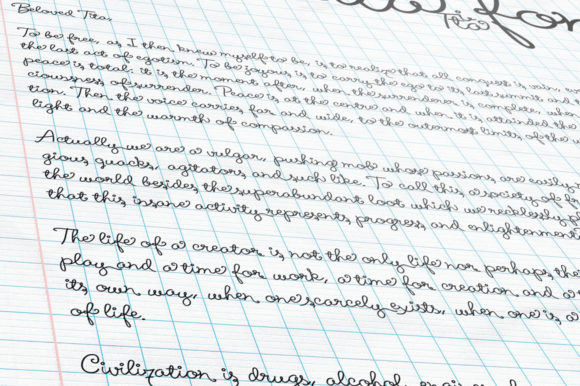 for
Tita
Beloved Tita,
To be free, as I then knew myself to be, is to realize that all conquest is vain,
the last act of egotism. To be joyous is to carry the ego to its last summit and
peace is total: it is the moment after, when the surrender is complete, when
ciousness of surrender. Peace is at the centre and when it is attained the
tion. Then the voice carries far and wide, to the outermost limits of the
light and the warmth of compassion.
Actually we are a vulgar, pushing mob whose passions are easily
gious quacks, agitators and such like. To call this a society of
the world besides the superabundant loot which we recklessly
that this insane activity represents progress and enlightenment
The life of a creator is not the only life nor perhaps the
play and a time for work, a time for creation and a
its own way, when one scarcely exists, when one is a
of life.
Civilization is drugs, alcohol,